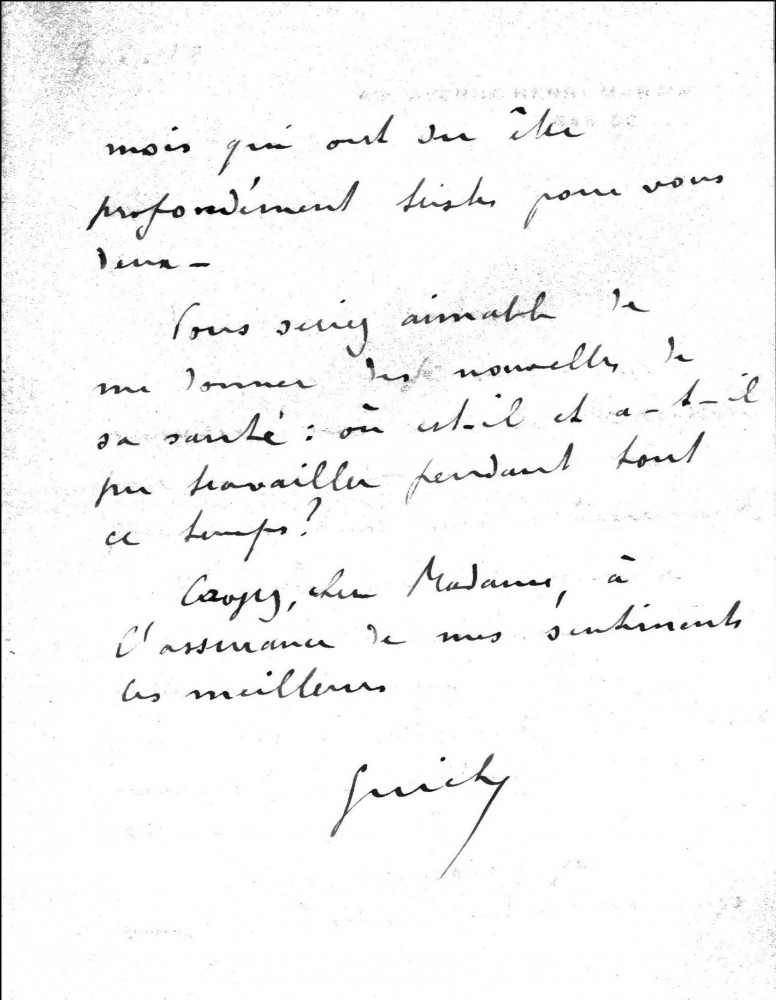 mois qui ont du être
profondément tristes pour vous
deux -
Vous seriez aimable de
me donner des nouvelles de
sa santé : où est-il et a-t-il
pu travailler pendant tout
ce temps ?
Croyez, chère Madame, à
l'assurance de mes sentiments
les meilleurs